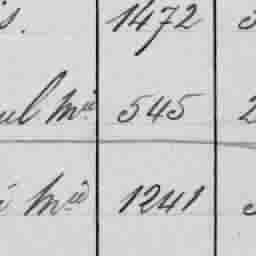 s. 1472
ul Mie 545 2
i Mie 1241